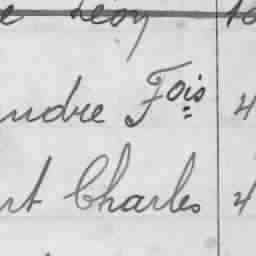 e Leon to
ndre Fois 4
rt Charles 4